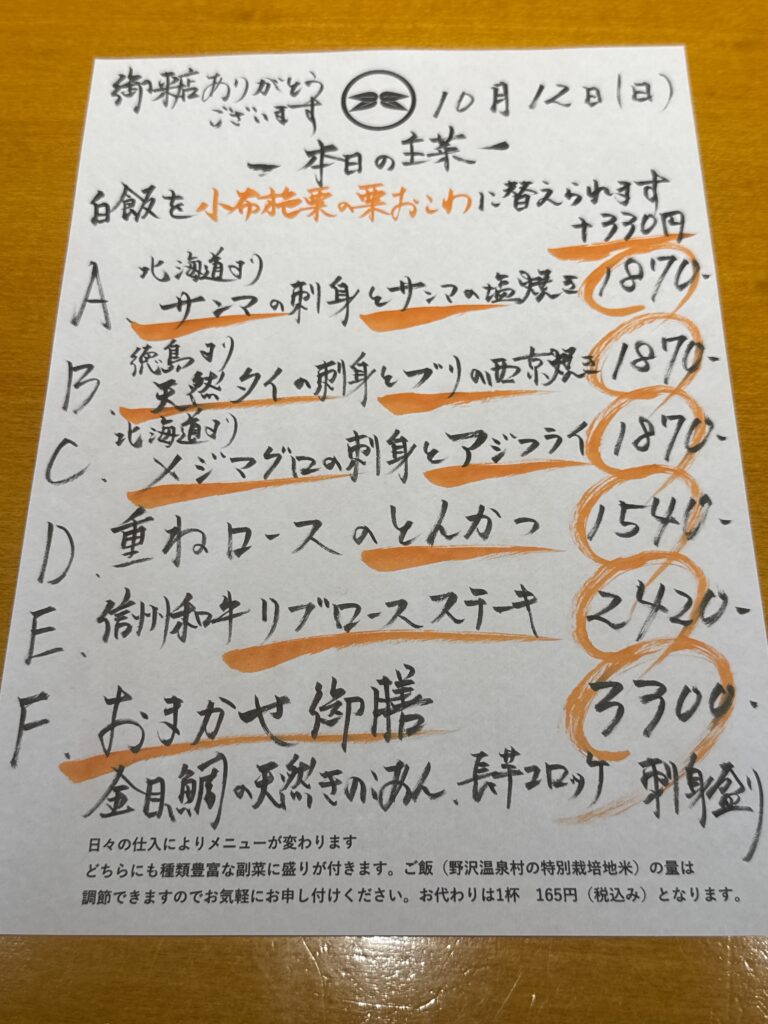 御来店ありがとう
ございます
10月12日(日)
ー本日の主菜ー
白飯を小布施栗の栗おこわに替えられます
+330円
A. 北海道より
サンマの刺身とサンマの塩焼き 1870-
B. 徳島より
天然タイの刺身とブリの西京焼き 1870-
C. 北海道より
メジマグロの刺身とアジフライ 1870-
D. 重ねロースのとんかつ 1540-
E. 信州和牛リブロースステーキ 2420-
F. おまかせ御膳 3300-
金目鯛の天然きのこあん、長芋コロッケ 刺身盛り
日々の仕入によりメニューが変わります
どちらにも種類豊富な副菜に盛りが付きます。ご飯（野沢温泉村の特別栽培地米）の量は
調節できますのでお気軽にお申し付けください。お代わりは1杯　165円（税込み）となります。